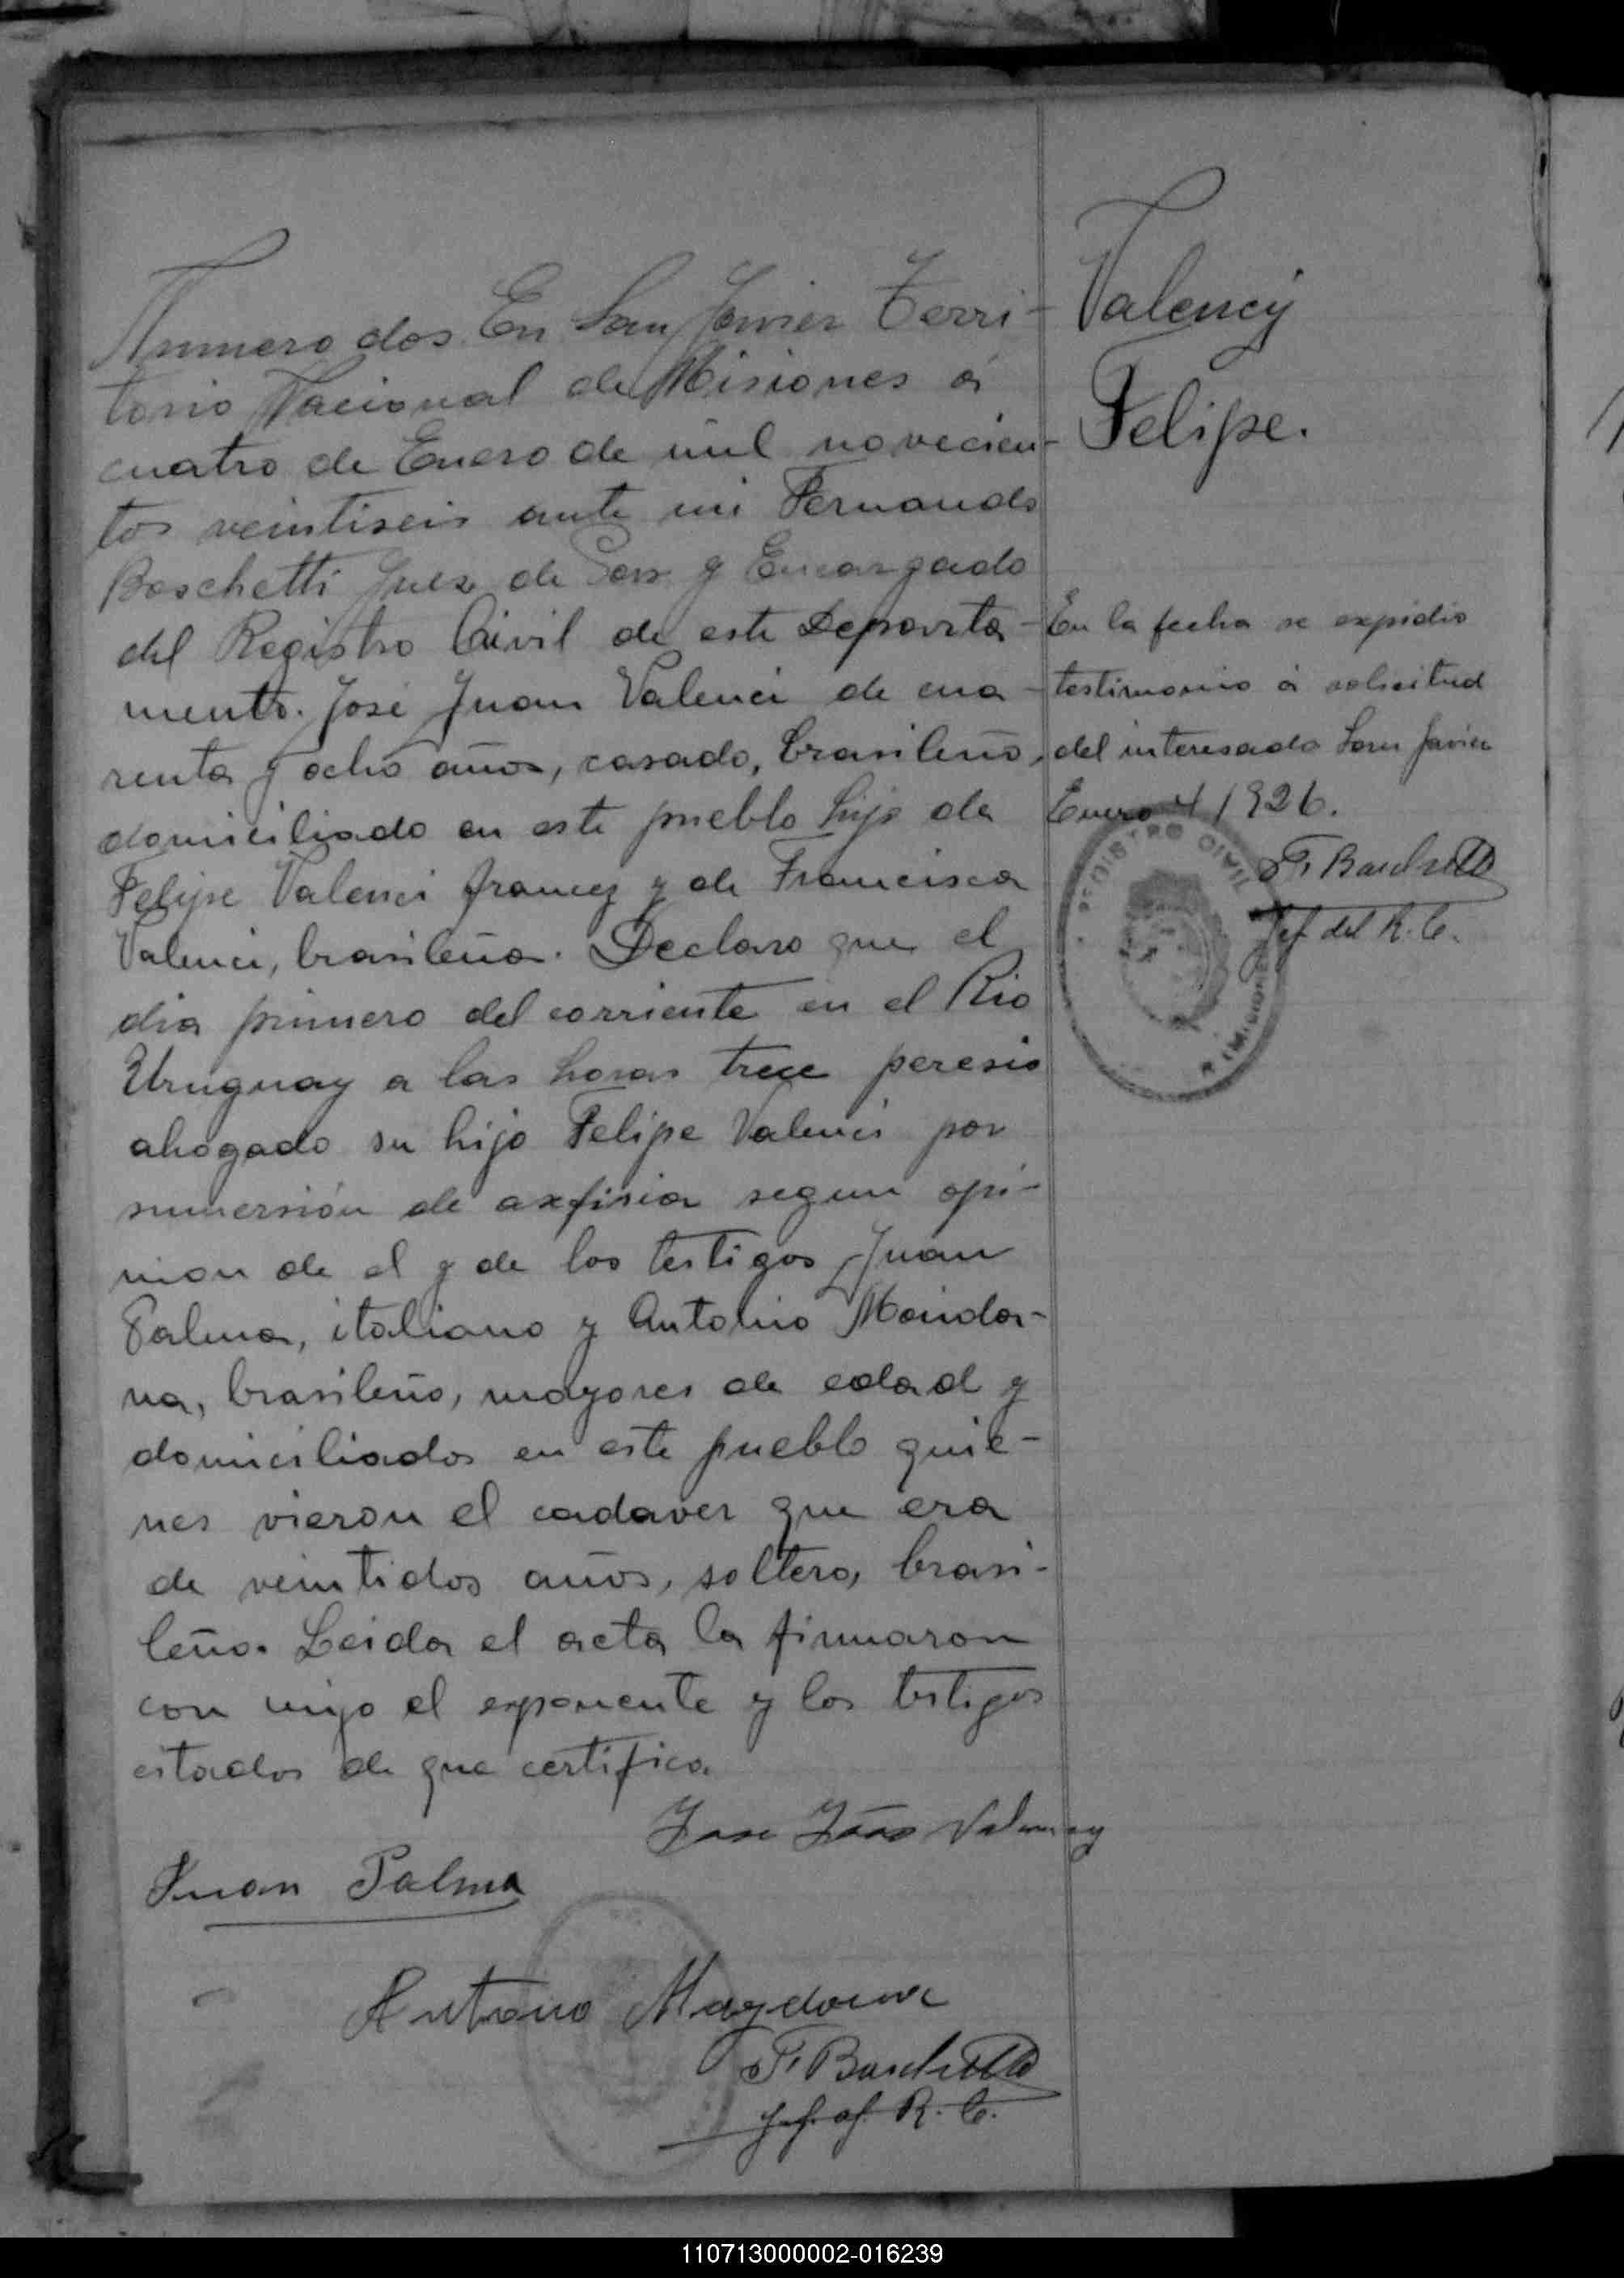 Numero dos. En San Javier Terri-
torio Nacional de Misiones á
cuatro de Enero de mil novecien-
tos veintiseis ante mi Fernando
Boschetti Juez de Paz y Encargado
del Registro Civil de este Departa-
mento. José Juan Valenci de cua-
renta y ocho años, casado, brasileño,
domiciliado en este pueblo hijo de
Felipe Valenci francez y de Francisca
Valenci, brasileña. Declaro que el
dia primero del corriente en el Rio
Uruguay a las horas trece peresio
ahogado su hijo Felipe Valenci por
sumersión de axfisia segun opi-
nion de el y de los testigos Juan
Palma, italiano y Antonio Maida-
na, brasileño, mayores de edad y
domiciliados en este pueblo quie-
nes vieron el cadaver que era
de veintidos años, soltero, brasi-
leño. Leida el acta la firmaron
con migo el exponente y los testigos
estados de que certifico.
Jose João Valency
Juan Palma
Antonio Maydana
F. Boschetti
Jef. of. R. C.
Valency
Felipe.
En la fecha se expidio
testimonio á solicitud
del interesado San Javier
Enero 4/926.
F. Boschetti
Jef. del R. C.
REGISTRO CIVIL
(MISIONES)
110713000002-016239